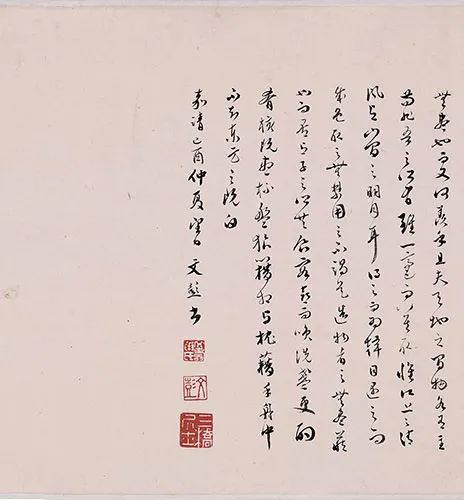 無盡也而又何羨乎且夫天地之間物各有主
苟非吾之所有雖一毫而莫取惟江上之清
風与山間之明月耳得之而為聲目遇之而
成色取之無禁用之不竭是造物者之無盡藏
也而吾与子之所共食客喜而笑洗盞更酌
肴核既盡杯盤狼籍相与枕藉乎舟中
不知東方之既白
嘉靖己酉仲夏 文彭書
文彭
三橋居士